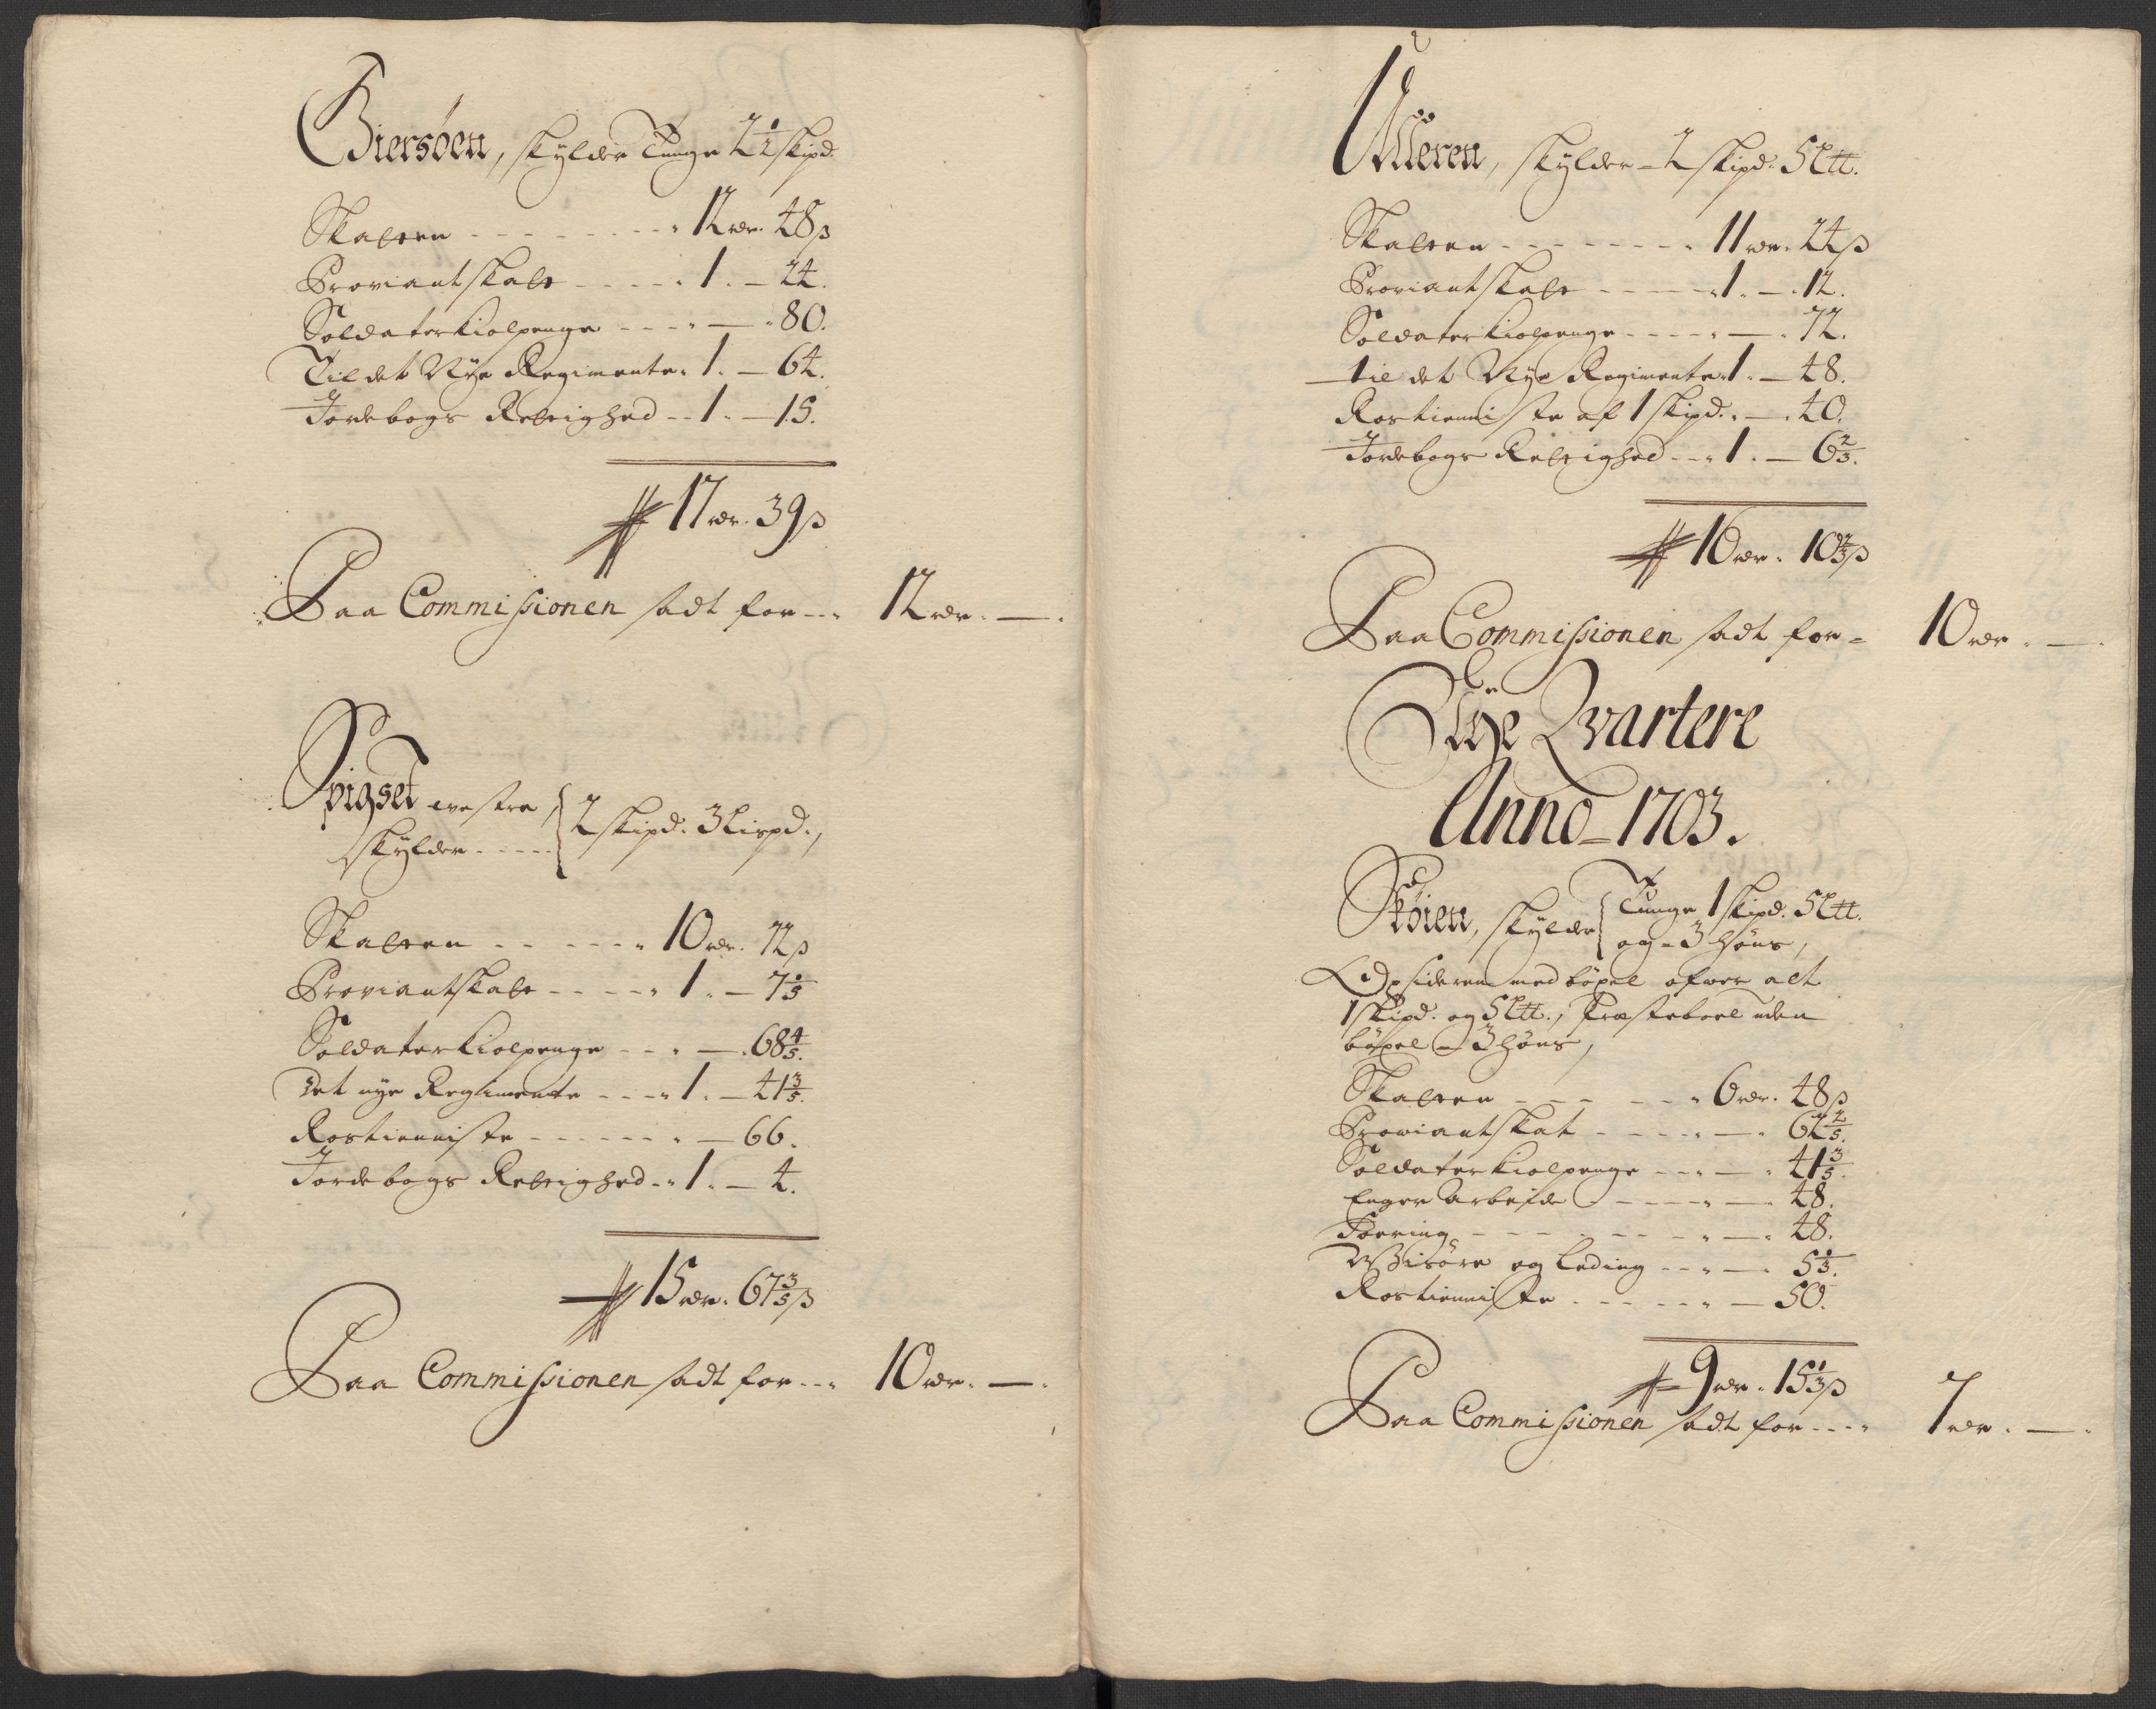 Giersøen, skylder Tunge 2½ skipd.
Skatten - - - - - - - - 12 rdr. 48 ß
Proviantskatt - - - - - 1. — 24.
Soldaterkiolpenge - - - - — 80.
Til det Nye Regimente. 1. — 64.
Jordebogs Rettighed - - 1. — 15.
17 rdr. 39 ß
Paa Commissionen sadt for - - - 12 rdr. — .
Spigset westre,
skylder - - - - - 2 skipd. 3 Lispd.,
Skatten - - - - - - 10 rdr. 72 ß
Proviantskatt - - - - - 1. — 7 1/5
Soldaterkiolpenge - - - — 68 4/5.
Det nye Regimente - - - 1. — 41 3/5.
Rostienniste - - - - - - — 66.
Jordebogs Rettighed - - 1. — 4.
15 rdr. 67 3/5 ß
Paa Commissionen sadt for - - - 10 rdr. — .
Mieren, skylder - 2 skipd. 5 Ltt.
Skatten - - - - - - - - 11 rdr. 24 ß
Proviantskatt - - - - - 1. — 12.
Soldaterkiolpenge - - - - — 72.
til det Nye Regimente. 1. — 48.
Rostienniste af 1 skipd. - — 40.
Jordebogs Rettighed - - 1. — 6 2/3.
16 rdr. 10 2/3 ß
Paa Commissionen sadt for - 10 rdr. — .
Itye Qvartere
Anno - 1703.
Skøien, skylder Tunge 1 skipd. 5 Ltt.
og - 3 høns,
Opsideren med böxel ofwer alt
1 skipd. og 5 Ltt., Præsteboel uden
böxel - 3 høns,
Skatten - - - - - - 6 rdr. 48 ß
Proviantskat - - - - - — 62 2/5.
Soldaterkiolpenge - - - — 41 3/5.
Enger Arbeide - - - - - — 48.
Foering - - - - - - - - — 48.
Wisøre og Leding - - - — 5 1/3.
Rostienniste - - - - - — 50.
9 rdr. 15 1/3 ß
Paa Commissionen sadt for - - - - 7 rdr. — .